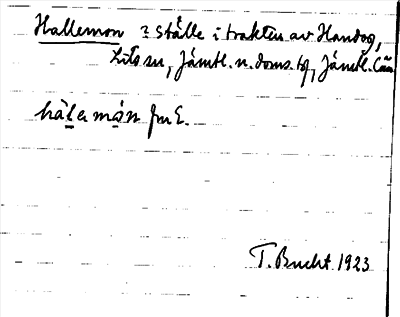 Hallemon ? ställe i trakten av Handog,
Lits sn, Jämtl. n. doms. tg, Jämtl. län
T. Bucht 1923